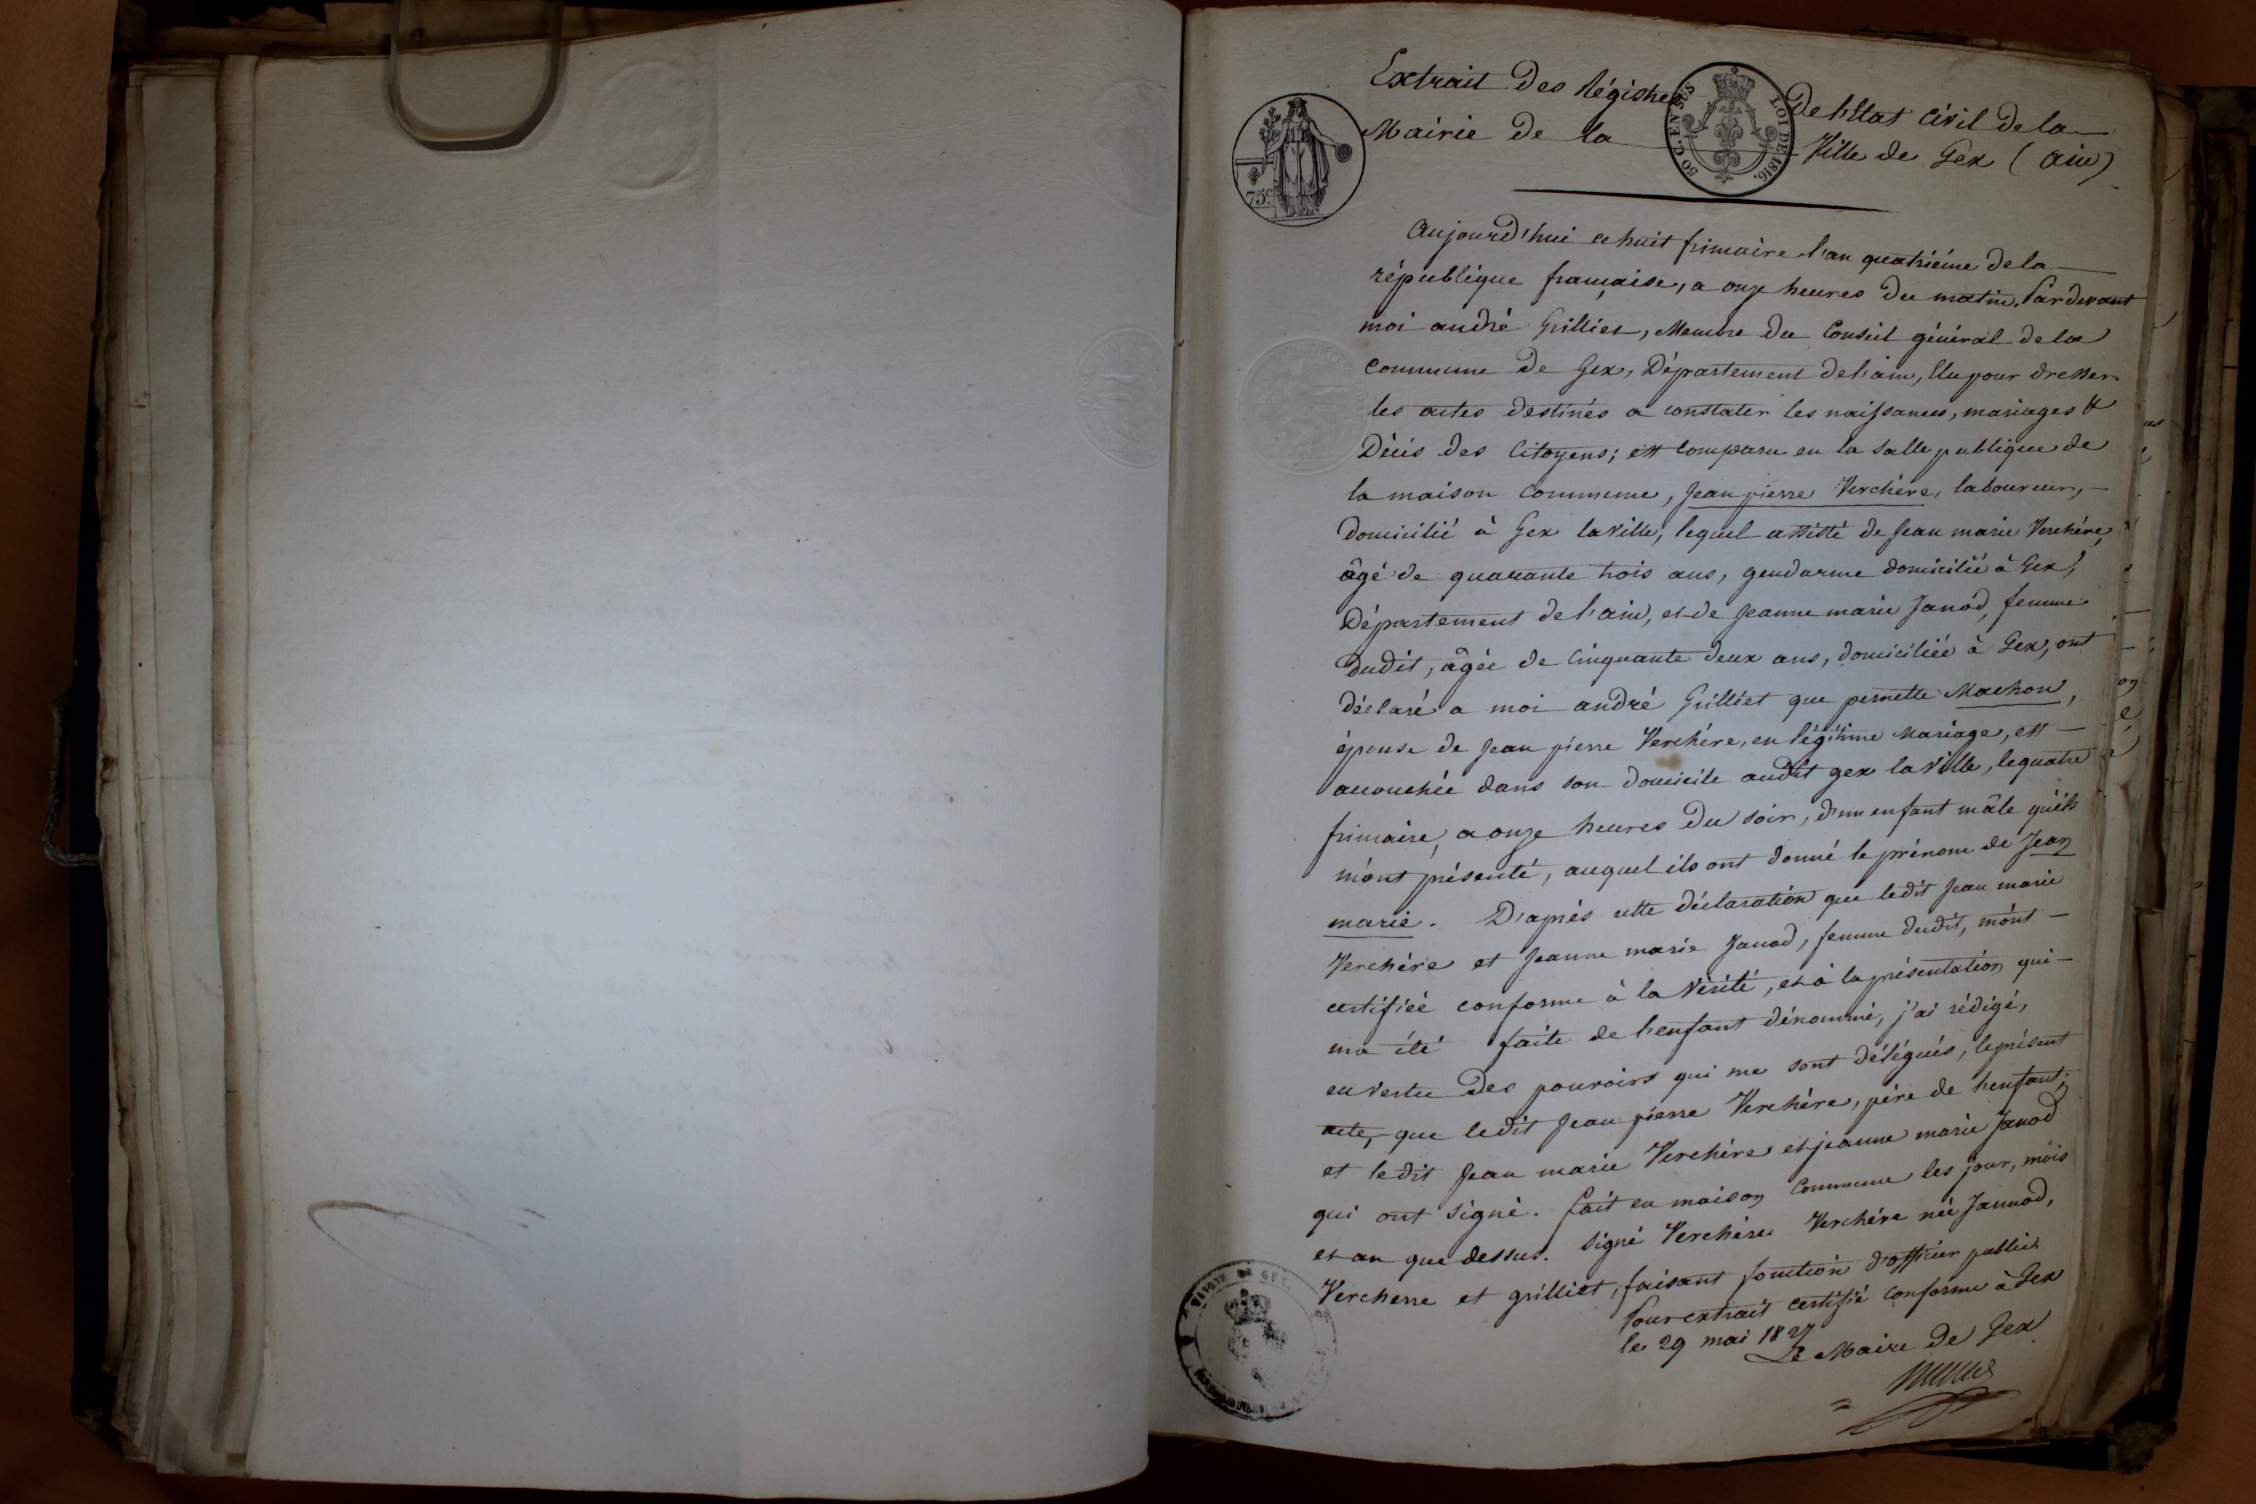 Extrait Des Régistres De l'Etat Civil de la
Mairie de la Ville de Gex (ain)
75c
50 C. EN SUS
LOI DE 1816.
Aujourd'hui ce huit frimaire l'an quatriéme de la
république française, a onze heures du matin. Pardevant
moi andré Grilliet, Membre du Conseil général de la
commune de Gex, Département de l'ain, Elu pour dresser
les actes destinés a constater les naissances, mariages &
Décès des Citoyens; est comparu en la salle publique de
la maison commune, Jean pierre Verchére, laboureur,
domicilié à Gex la ville, lequel assisté de Jean marie Verchére,
âgé de quarante trois ans, gendarme domicilié à Gex,
Département de l'ain, et de Jeanne marie Janod, femme
dudit, âgée de cinquante deux ans, domiciliée à Gex, ont
déclaré a moi andré Grilliet que pernette Machon,
épouse de Jean pierre Verchére, en légitime Mariage, est
accouchée dans son domicile audit gex la ville, le quatre
frimaire, a onze heures du soir, d'un enfant mâle qu'ils
m'ont présenté, auquel ils ont donné le prénom de Jean
marie. D'aprés cette déclaration que ledit Jean marie
Verchére et Jeanne marie Janod, femme dudit, m'ont
certifiée conforme à la Vérité, et à la présentation qui
ma été faite de l'enfant dénommé, j'ai rédigé,
en vertu des pouvoirs qui me sont délégués, le présent
acte, que ledit Jean pierre Verchére, pére de l'enfant,
et ledit Jean marie Verchére et jeanne marie Janod
qui ont signé. fait en maison commune les jour, mois
et an que dessus. Signé Verchére Verchére née Jannod,
Vercherre et grilliet, faisant fonction d'officier public
Pour extrait certifié conforme à Gex
le 29 mai 1827
Le Maire de Gex